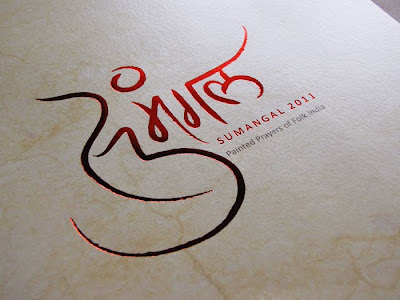 सुमंगल
SUMANGAL 2011
Painted Prayers of Folk India